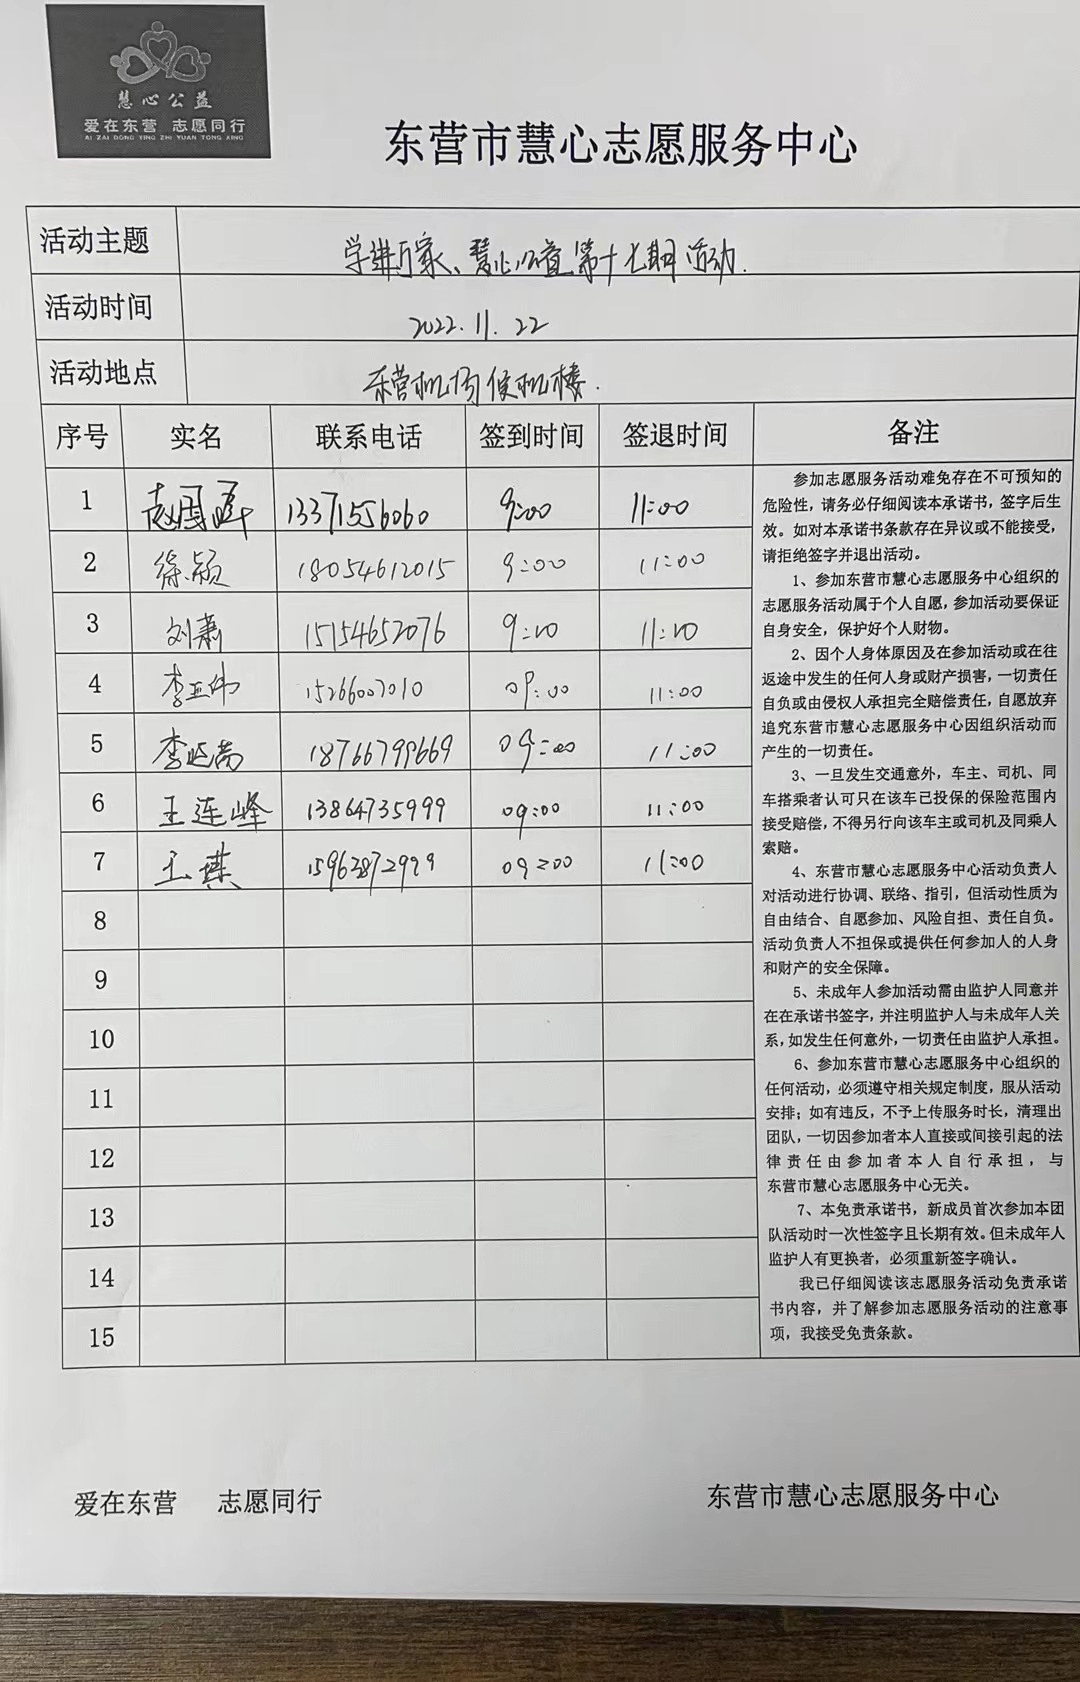 慧心公益
爱在东营 志愿同行
AI ZAI DONG YING ZHI YUAN TONG XING
东营市慧心志愿服务中心
活动主题 学进万家、慧心公益第十七期活动.
活动时间 2022.11.22
活动地点 东营机场候机楼.
序号 实名 联系电话 签到时间 签退时间 备注
1 赵国 13371556060 9:00 11:00
2 徐颖 18054612015 9:00 11:00
3 刘萧 15154652076 9:00 11:00
4 李亚伟 15266007010 09:00 11:00
5 李 18766799669 09:00 11:00
6 王连峰 13864735999 09:00 11:00
7 王琪 15963872999 09:00 11:00
8
9
10
11
12
13
14
15
参加志愿服务活动难免存在不可预知的
危险性，请务必仔细阅读本承诺书，签字后生
效。如对本承诺书条款存在异议或不能接受，
请拒绝签字并退出活动。
1、参加东营市慧心志愿服务中心组织的
志愿服务活动属于个人自愿，参加活动要保证
自身安全，保护好个人财物。
2、因个人身体原因及在参加活动或在往
返途中发生的任何人身或财产损害，一切责任
自负或由侵权人承担完全赔偿责任，自愿放弃
追究东营市慧心志愿服务中心因组织活动而
产生的一切责任。
3、一旦发生交通意外，车主、司机、同
车搭乘者认可只在该车已投保的保险范围内
接受赔偿，不得另行向该车主或司机及同乘人
索赔。
4、东营市慧心志愿服务中心活动负责人
对活动进行协调、联络、指引，但活动性质为
自由结合、自愿参加、风险自担、责任自负。
活动负责人不担保或提供任何参加人的人身
和财产的安全保障。
5、未成年人参加活动需由监护人同意并
在在承诺书签字，并注明监护人与未成年人关
系，如发生任何意外，一切责任由监护人承担。
6、参加东营市慧心志愿服务中心组织的
任何活动，必须遵守相关规定制度，服从活动
安排；如有违反，不予上传服务时长，清理出
团队，一切因参加者本人直接或间接引起的法
律责任由参加者本人自行承担，与
东营市慧心志愿服务中心无关。
7、本免责承诺书，新成员首次参加本团
队活动时一次性签字且长期有效。但未成年人
监护人有更换者，必须重新签字确认。
我已仔细阅读该志愿服务活动免责承诺
书内容，并了解参加志愿服务活动的注意事
项，我接受免责条款。
爱在东营 志愿同行 东营市慧心志愿服务中心